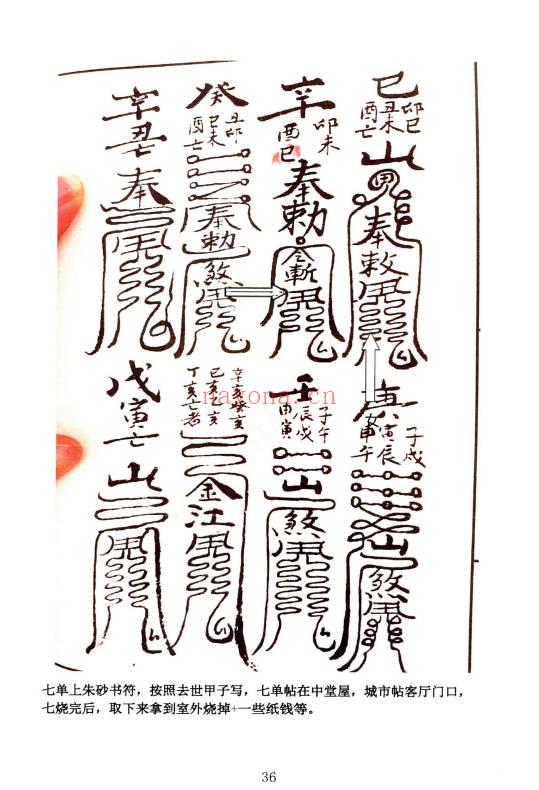 己
卯巳
丑未
酉亡
山
鬼
奉
敕
辛
卯未
酉巳
奉
勅
令斬
癸
丑卯
巳未
酉亡
奉
勅
煞
辛
丑
亡
奉
庚
子戌
寅辰
申午
山
煞
壬
子午
辰戌
申寅
山
煞
辛亥癸亥
己亥乙亥
丁亥亡者
金
江
戊
寅
亡
山
nayona.cn
七单上朱砂书符，按照去世甲子写，七单帖在中堂屋，城市帖客厅门口，
七烧完后，取下来拿到室外烧掉+一些纸钱等。
36